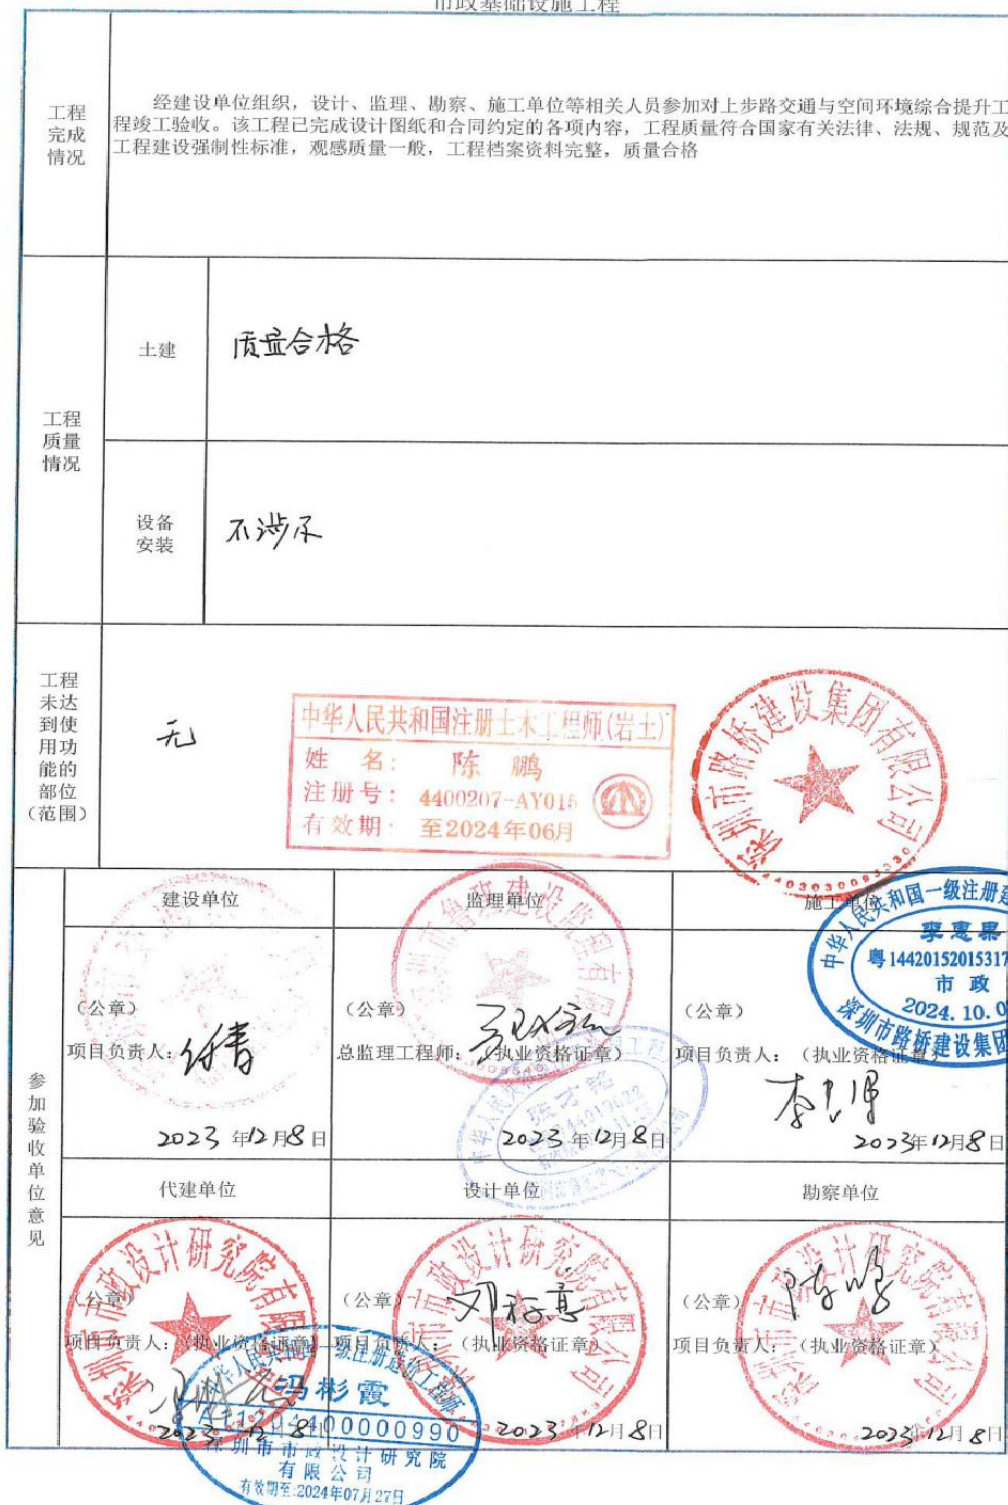 市政基础设施工程
工程
完成
情况
经建设单位组织，设计、监理、勘察、施工单位等相关人员参加对上步路交通与空间环境综合提升工
程竣工验收。该工程已完成设计图纸和合同约定的各项内容，工程质量符合国家有关法律、法规、规范及
工程建设强制性标准，观感质量一般，工程档案资料完整，质量合格
工程
质量
情况
土建
质量合格
设备
安装
不涉及
工程
未达
到使
用功
能的
部位
（范围）
无
中华人民共和国注册土木工程师(岩土)
姓 名： 陈 鹏
注册号： 4400207-AY015
有效期： 至2024年06月
深圳市路桥建设集团有限公司
参加验收单位意见
建设单位
（公章）
项目负责人：
付青
2023 年12月8日
监理单位
（公章）
总监理工程师： （执业资格证章）
2023 年12月8日
施工单位
中华人民共和国一级注册建
李惠果
粤14420152015317
市 政
2024.10.0
深圳市路桥建设集团
（公章）
项目负责人： （执业资格证章）
2023年12月8日
代建单位
深圳市市政设计研究院有限公司
（公章）
项目负责人：（执业资格证章）
冯彬霞
4400000990
深圳市市政设计研究院
有限公司
有效期至:2024年07月27日
设计单位
深圳市市政设计研究院有限公司
（公章）
项目负责人： （执业资格证章）
2023年12月8日
勘察单位
深圳市市政设计研究院有限公司
（公章）
陈鹏
项目负责人： （执业资格证章）
2023年12月8日